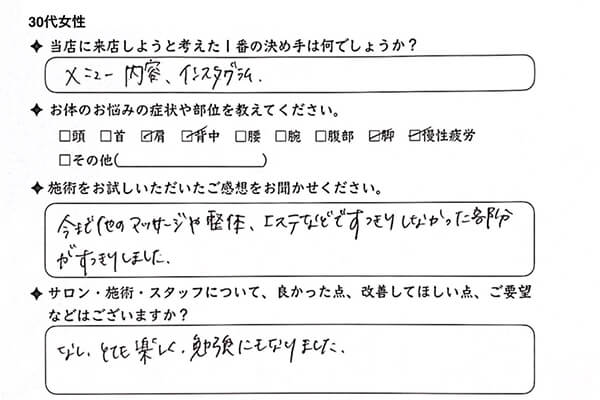 30代女性
✦ 当店に来店しようと考えた1番の決め手は何でしょうか？
メニュー内容、インスタグラム.
✦ お体のお悩みの症状や部位を教えてください。
□頭 □首 ☑肩 ☑背中 □腰 □腕 □腹部 ☑脚 ☑慢性疲労
□その他( )
✦ 施術をお試しいただいたご感想をお聞かせください。
今まで他のマッサージや整体、エステなどですっきりしなかった部分
がすっきりしました.
✦ サロン・施術・スタッフについて、良かった点、改善してほしい点、ご要望
などはございますか？
なし、とても楽しく、勉強にもなりました.